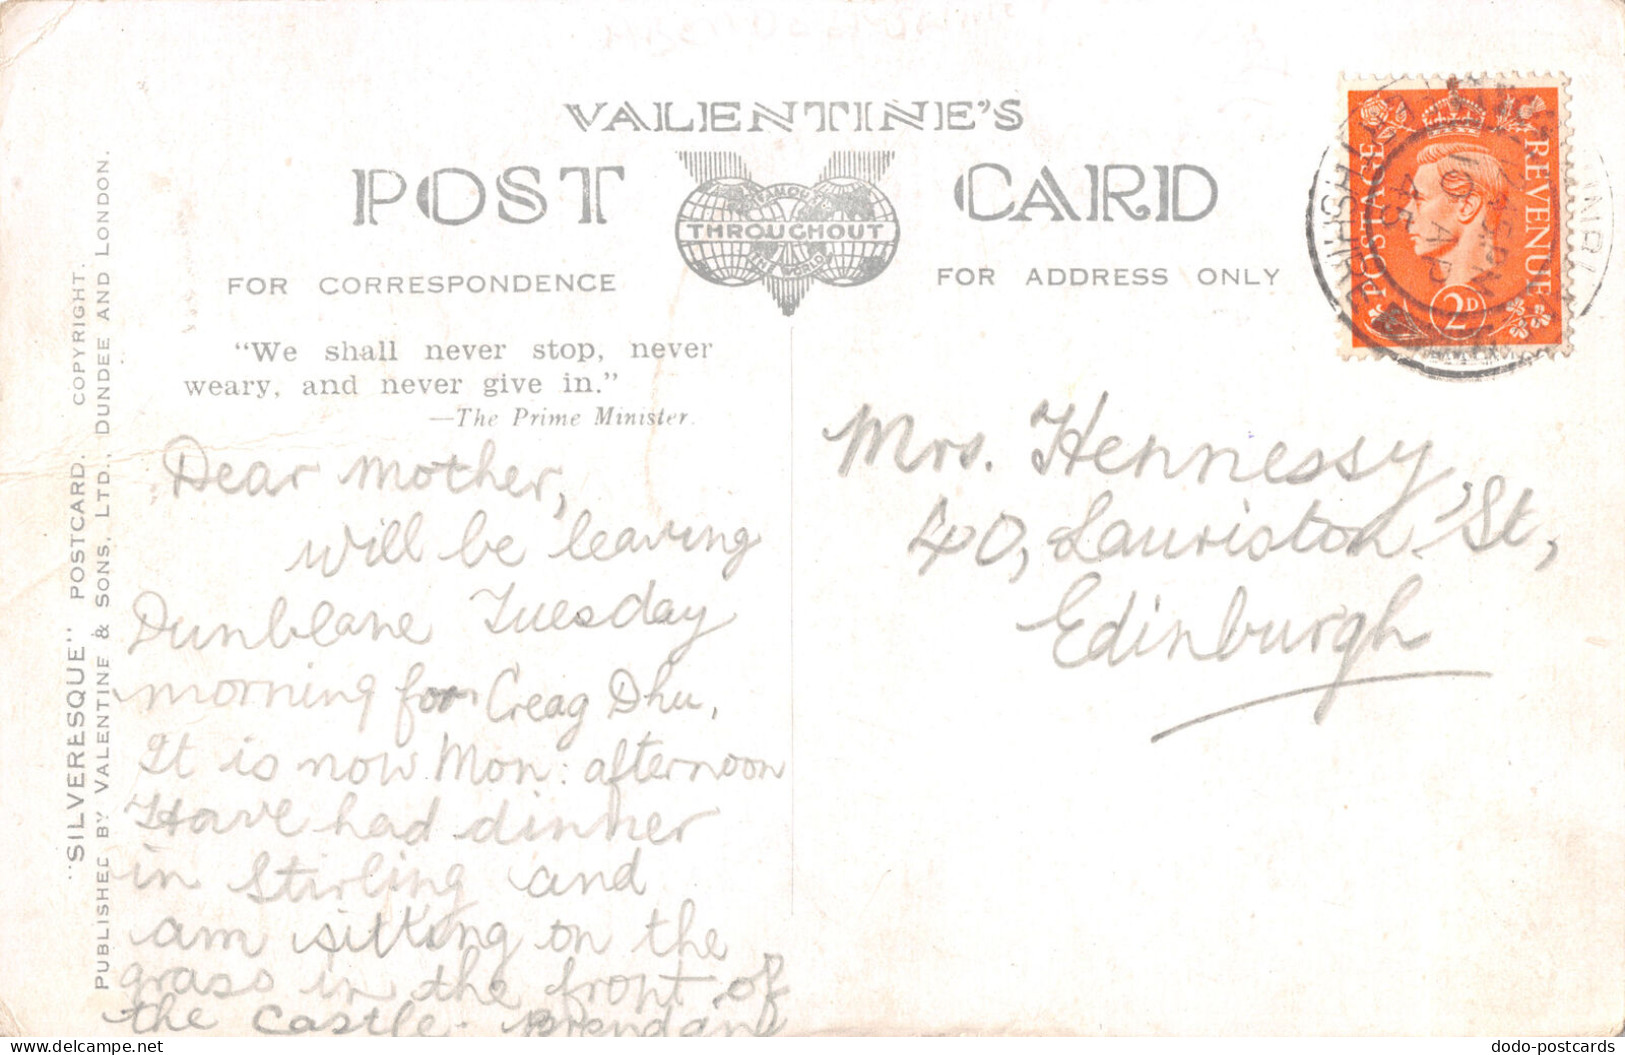 VALENTINE'S
POST CARD
FAMOUS
THROUGHOUT
THE WORLD
FOR CORRESPONDENCE
FOR ADDRESS ONLY
"We shall never stop, never
weary, and never give in."
—The Prime Minister.
Dear Mother,
will be leaving
Dunblane Tuesday
morning for Creag Dhu,
It is now Mon: afternoon
Have had dinner
in Stirling and
am sitting on the
grass in the front of
the Castle. Brendan
Mrs. Hennessy
40, Lauriston St,
Edinburgh
POSTAGE REVENUE
2D
PM
10 AP
45
PERTHSHIRE
"SILVERESQUE" POSTCARD. COPYRIGHT.
PUBLISHED BY VALENTINE & SONS, LTD., DUNDEE AND LONDON.
dodo-postcards